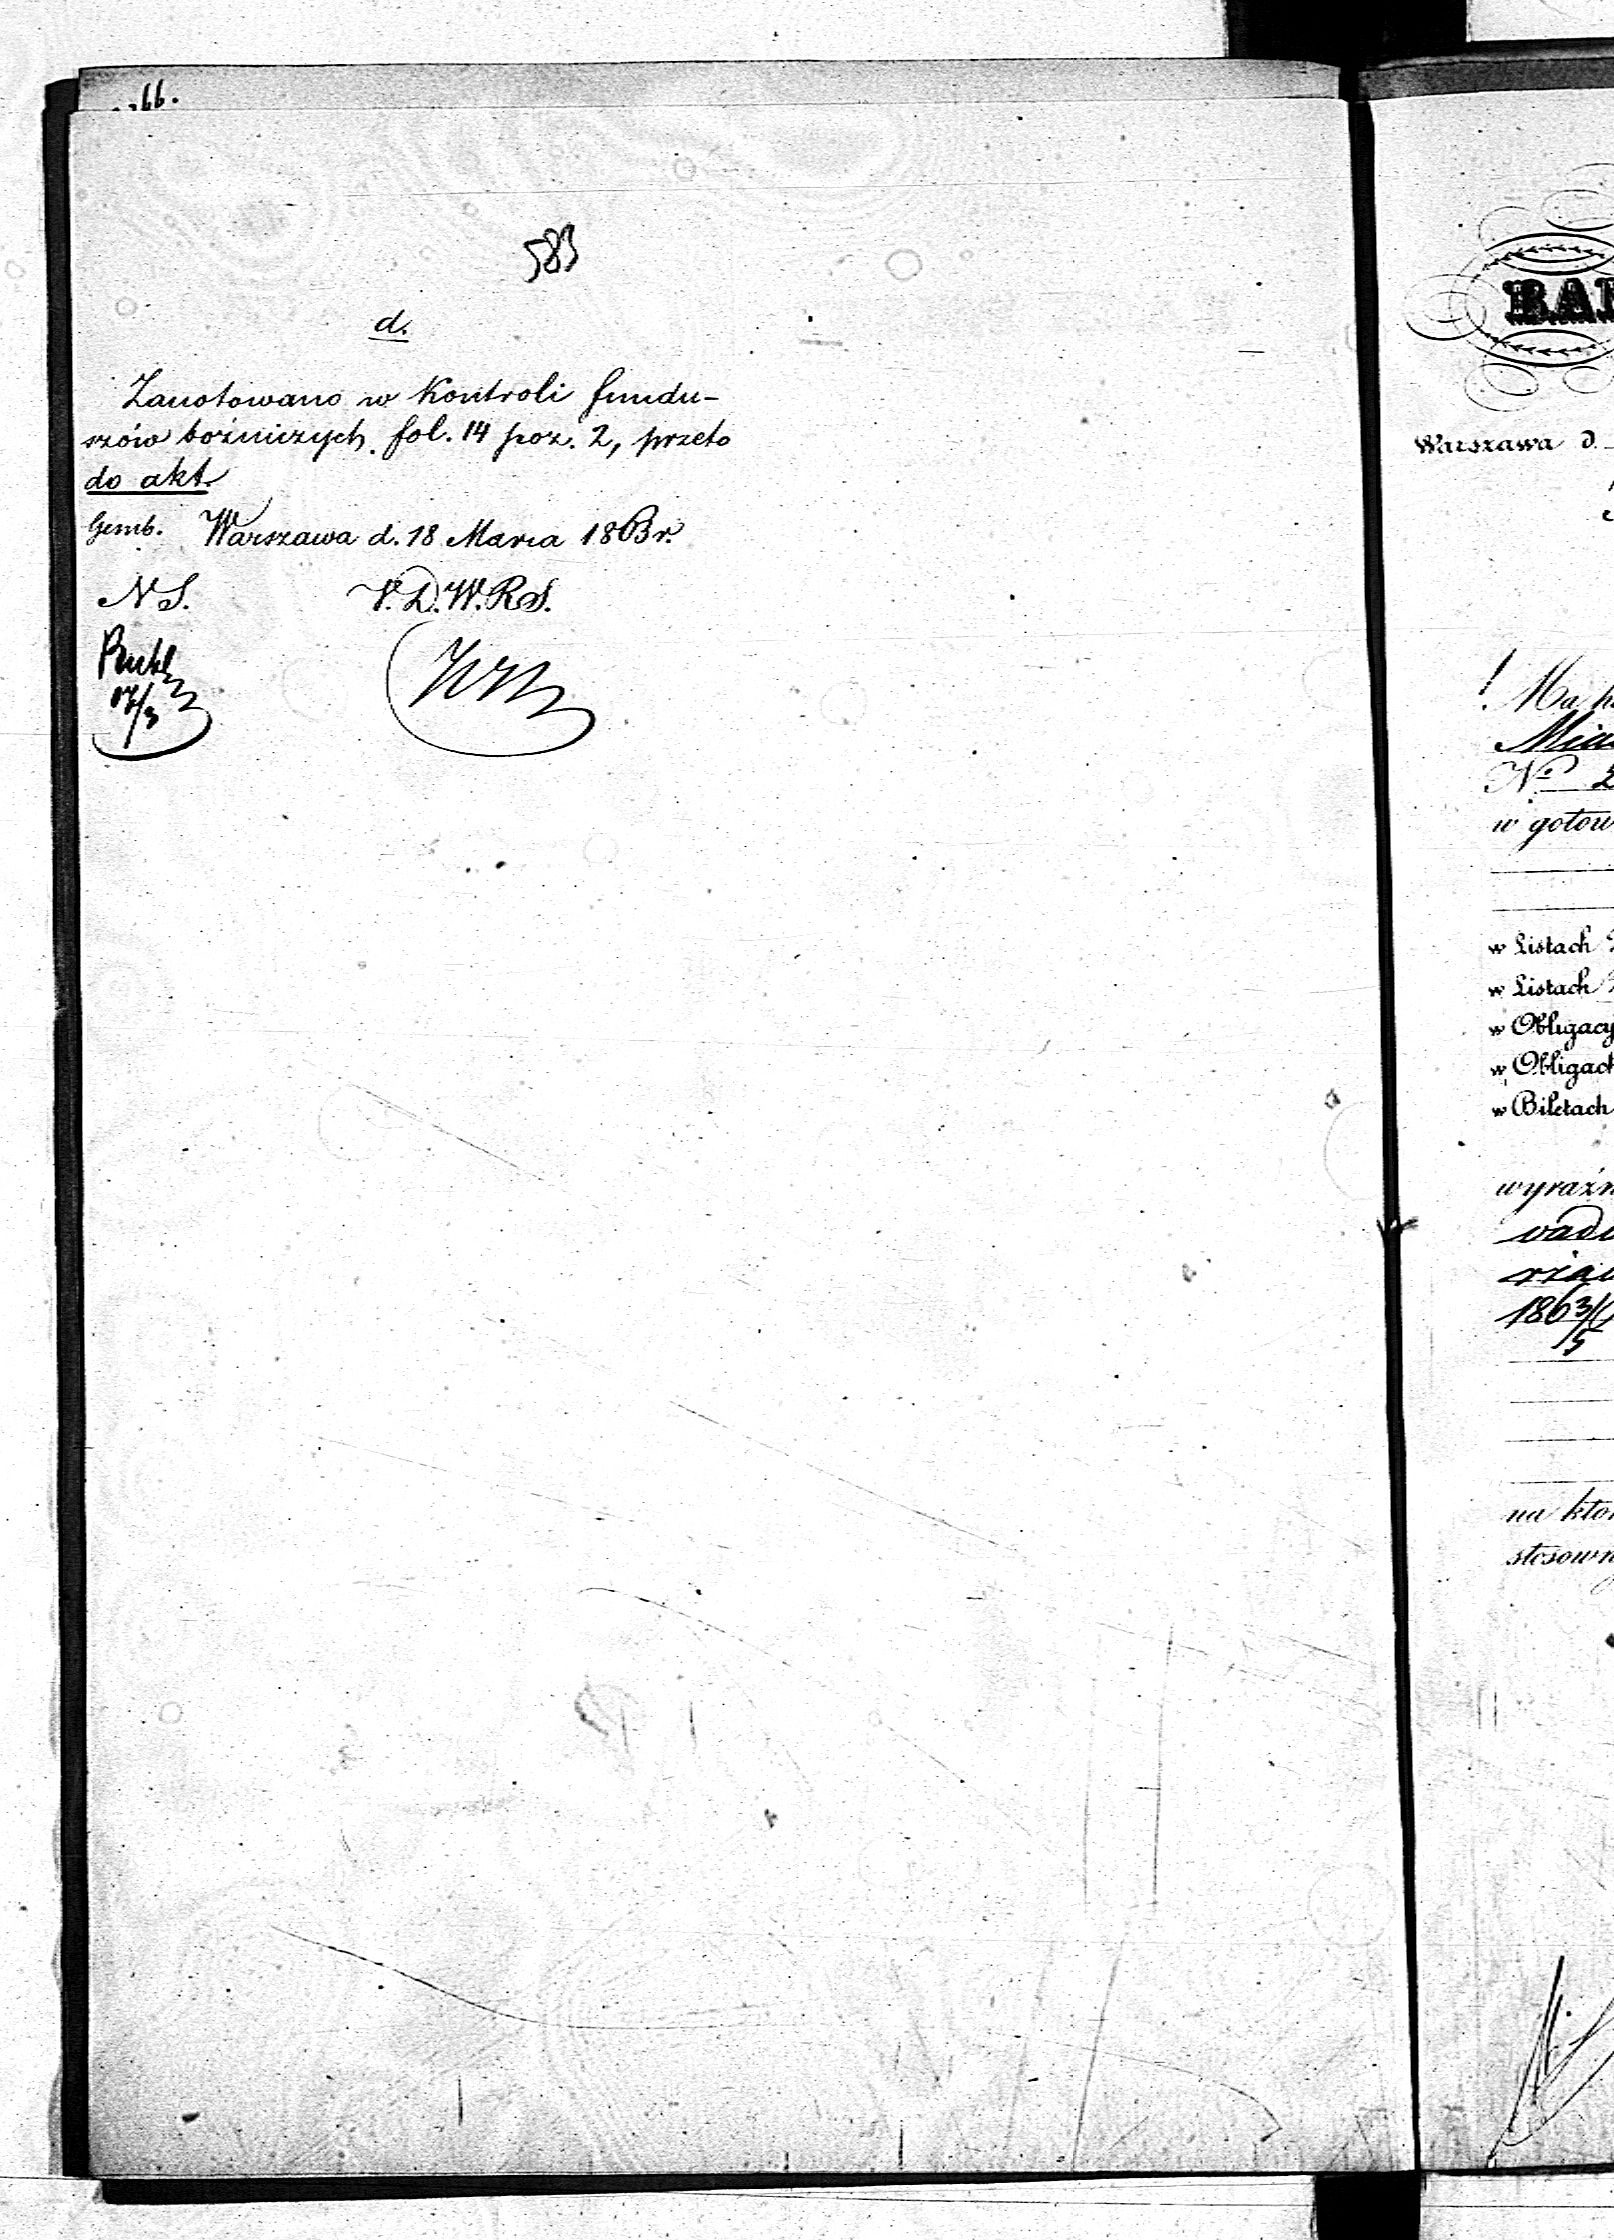 66.
583
d.
Zanotowano w Kontroli fundu-
szów bóżniczych fol. 14 poz. 2, przeto
do akt.
Gemb. Warszawa d. 18 Marca 1863 r.
N S. V. D. W. R S.
17/3
BA
Warszawa d.
Ma
№ 2
w gotow
w Listach
w Listach
w Obligacy
w Obligach
w Biletach
wyraźn
vadi
1863/
5
na któr
stosown